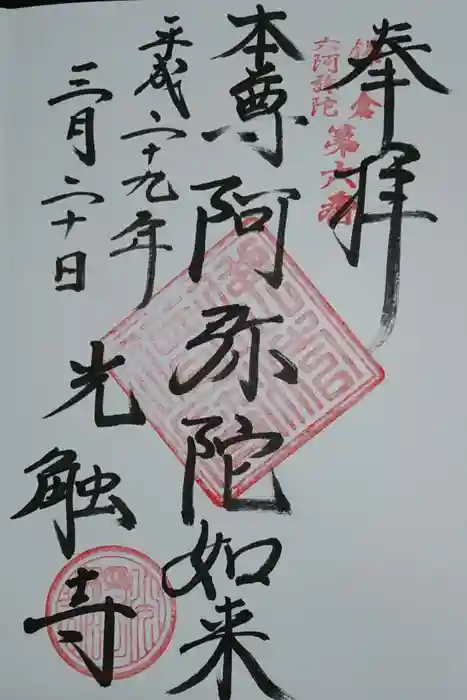 奉拝
鎌倉
六阿弥陀
第六番
本尊阿弥陀如来
平成二十九年
三月二十日
光触寺